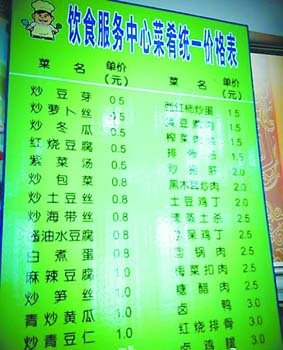 饮食服务中心菜肴统一价格表
菜名 单价(元)
炒豆芽 0.5
炒萝卜丝 0.5
炒冬瓜 0.5
红烧豆腐 0.5
紫菜汤 0.5
炒包菜 0.8
炒土豆丝 0.8
炒海带丝 0.8
酱油水豆腐 0.8
白煮蛋 0.8
麻辣豆腐 1.0
炒笋丝 1.0
青炒黄瓜 1.0
炒青豆仁 1.0
菜名 单价(元)
西红柿炒蛋 1.5
1.5
榨菜肉 1.5
排骨
炒 2.5
黑木耳炒肉 2.5
土豆鸡丁 2.5
2.5
鸡丁 2.5
回锅肉 2.5
梅菜扣肉 2.5
糖醋肉 2.5
卤鸭 3.0
红烧排骨 3.0
卤鸡腿 3.0